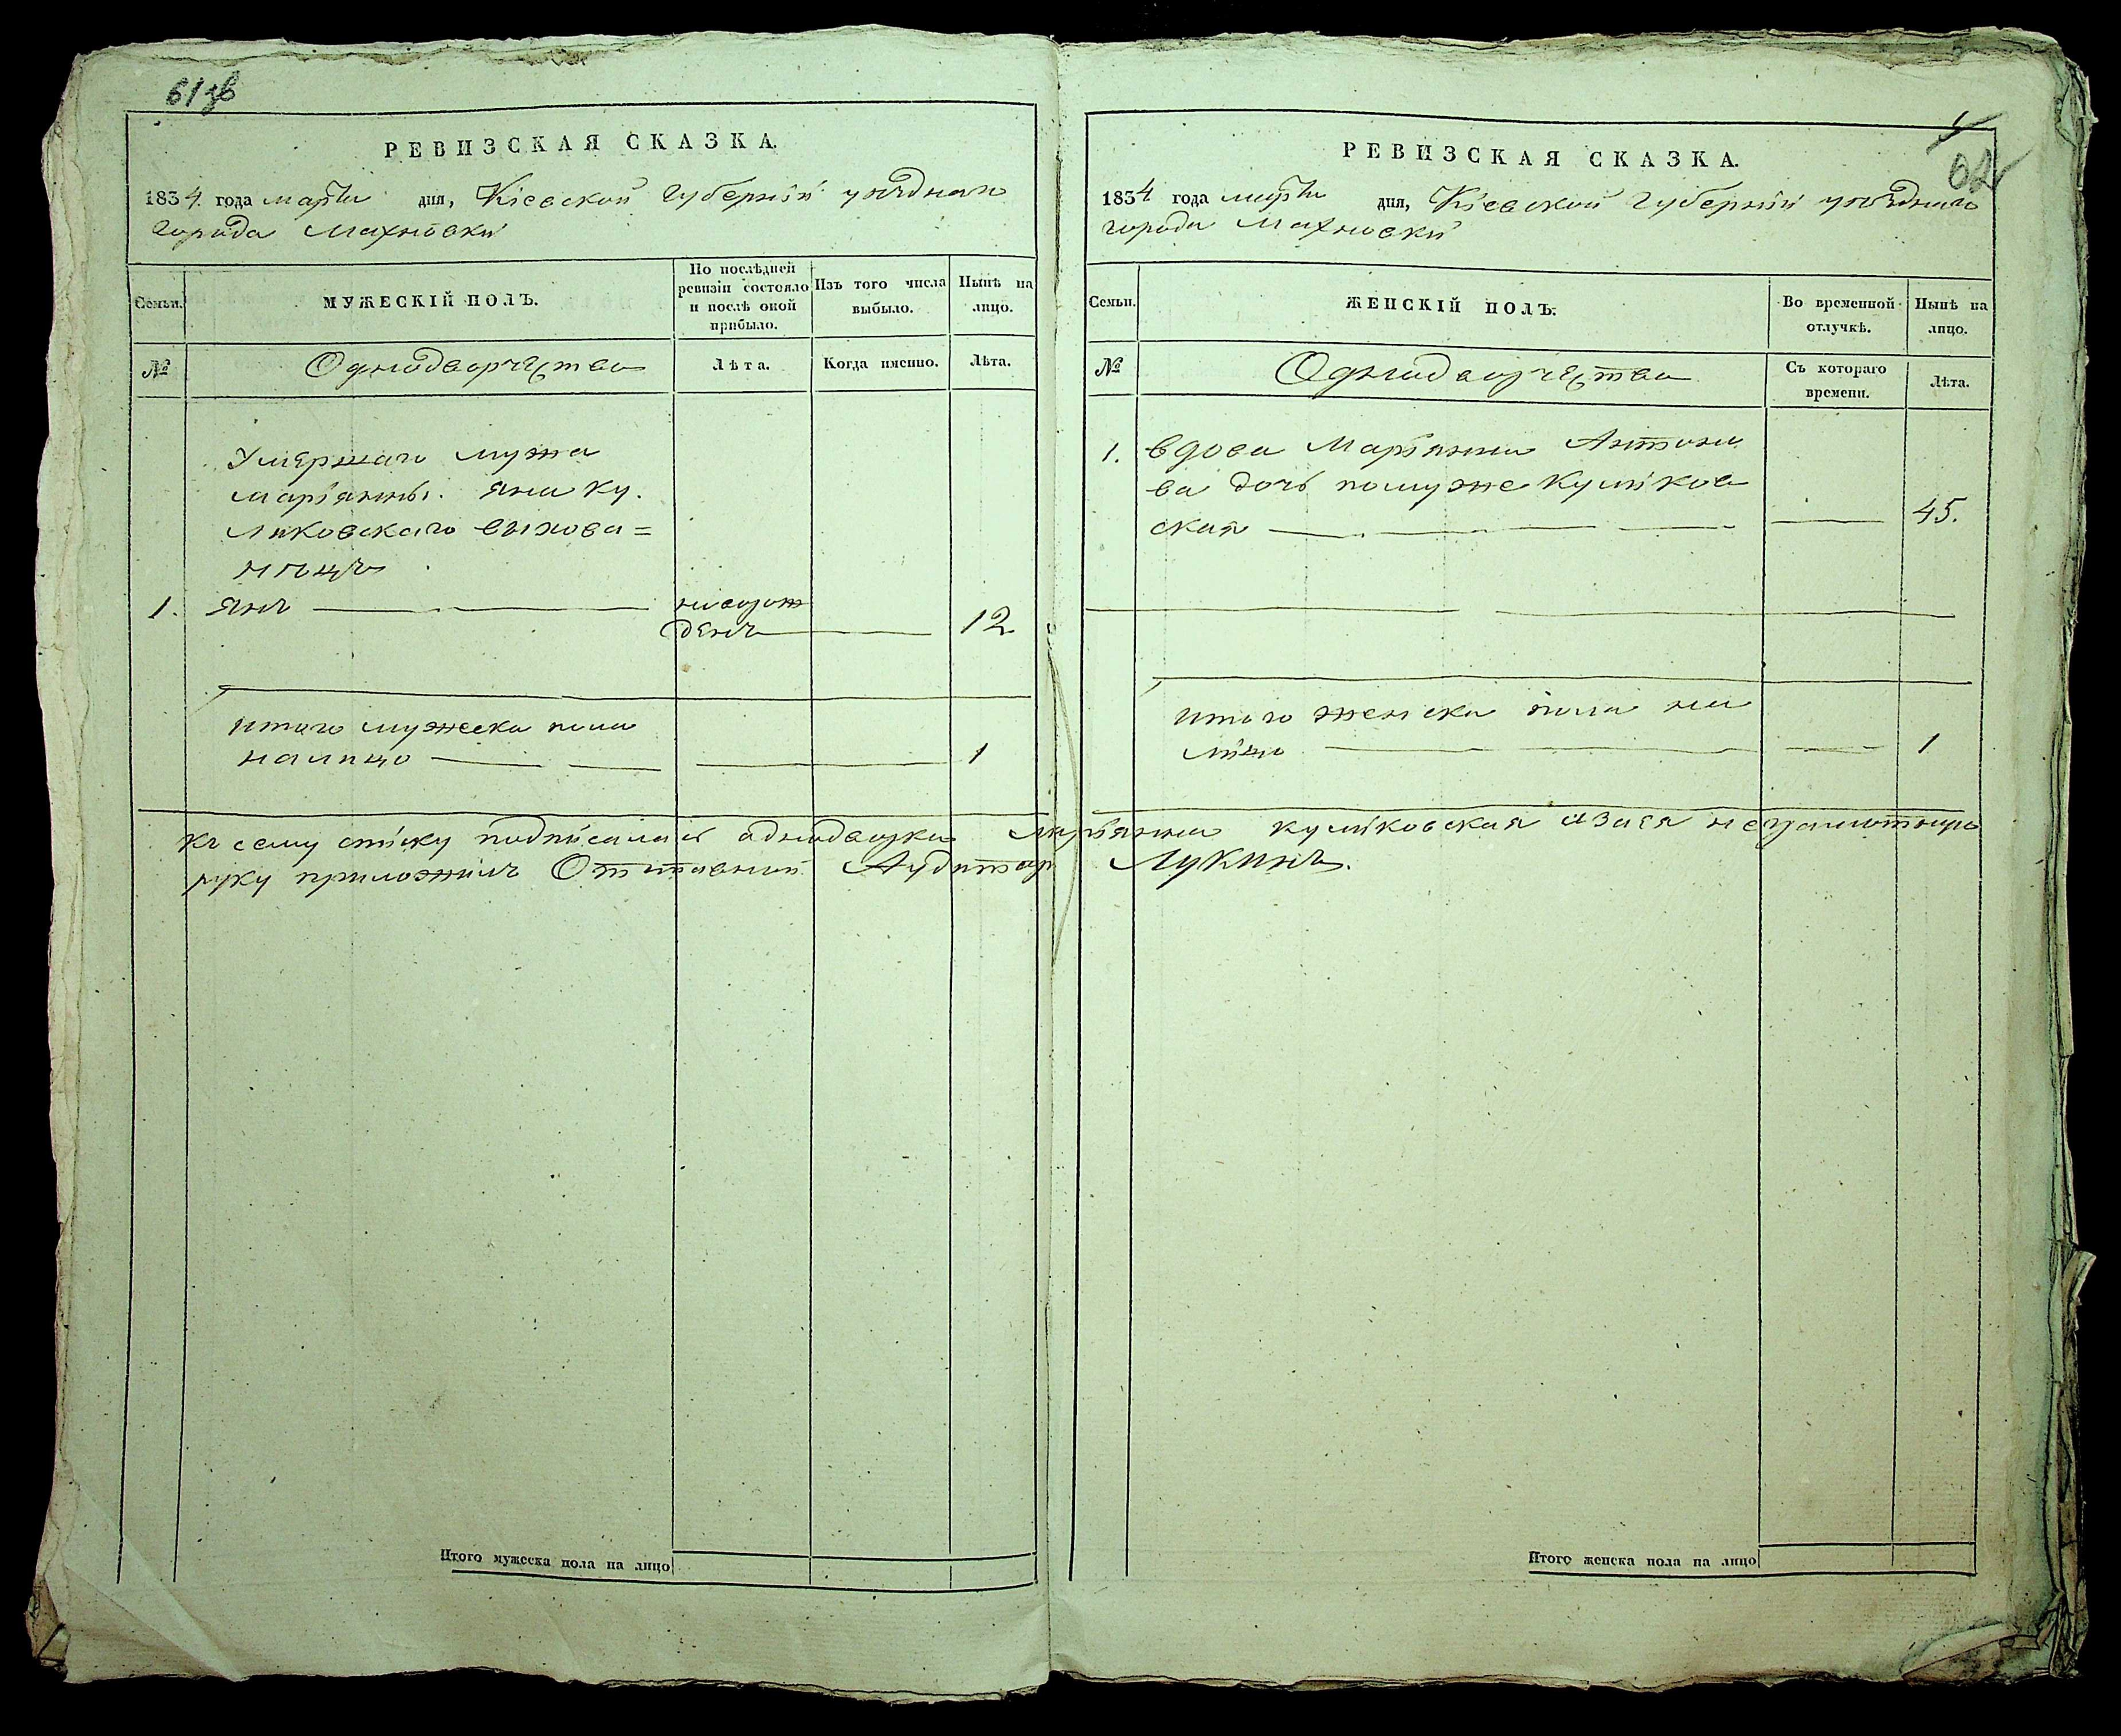 61зв
РЕВИЗСКАЯ СКАЗКА.
1834 года марта дня, Кіевской Губерніи уѣзднаго
города Махновки
Семьи.
МУЖЕСКІЙ ПОЛЪ.
По послѣдней ревизіи состояло и послѣ оной прибыло.
Изъ того числа выбыло.
Нынѣ на лицо.
№
Однодворчества
Лѣта.
Когда именно.
Лѣта.
Умершаго мужа
Марьянны. Яна Ку.
ликовскаго выхова=
нецъ
1. Янъ
новорож
денъ 12
итого мужеска пола
налицо 1
62
РЕВИЗСКАЯ СКАЗКА.
1834 года марта дня, Кіевской Губерніи уѣзднаго
города Махновки
Семьи.
ЖЕНСКІЙ ПОЛЪ.
Во временной отлучкѣ.
Нынѣ на лицо.
№
Однодворчества
Съ котораго времени.
Лѣта.
1. вдова Марьянна Антоно
ва дочь помуже Куликов
ская 45.
итого женска пола на
лицо 1
къ сему списку подписалась однодворка Марьянна Куликовская азаея неграмотную
руку приложилъ Отставной Аудиторъ Лукинъ.
Итого мужеска пола на лицо
Итого женска пола на лицо